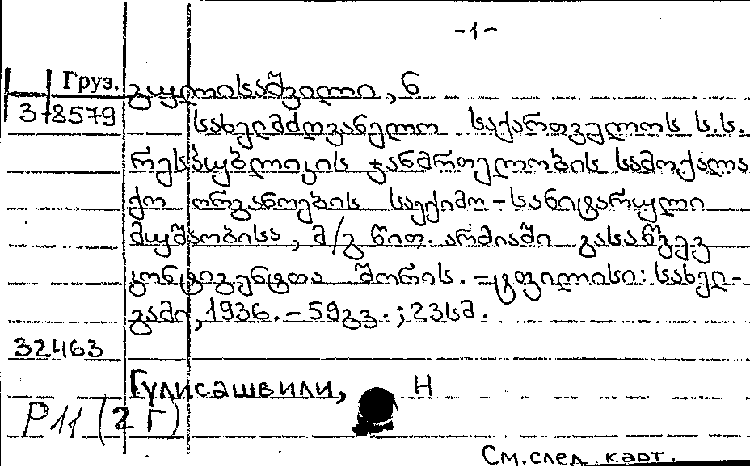 -1-
Груз. გულისაშვილი, ნ
3-8579
სახელმძღვანელო საქართველოს ს.ს.
რესპუბლიკის ჯანმრთელობის სამოქალა
ქო ორგანოების საექიმო-სანიტარული
მუშაობისა, მ/გ წით. არმიაში გასაწვევ
კონტიგენტთა შორის. - ტფილისი: სახელ-
გამი, 1936. - 59გვ. ; 23სმ.
32463
Гулисашвили, Н
Р11 (2 Г)
См. след. карт.